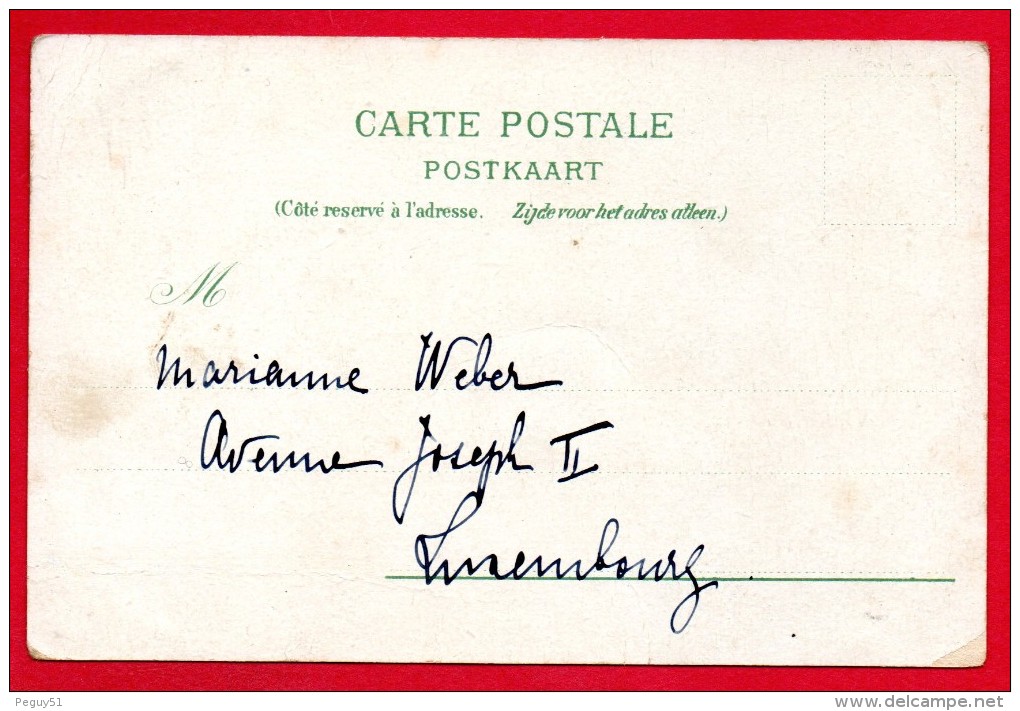 CARTE POSTALE
POSTKAART
(Côté reservé à l'adresse. Zijde voor het adres alleen.)
M
Marianne Weber
Avenue Joseph II
Luxembourg
Peguy51
www.delcampe.net